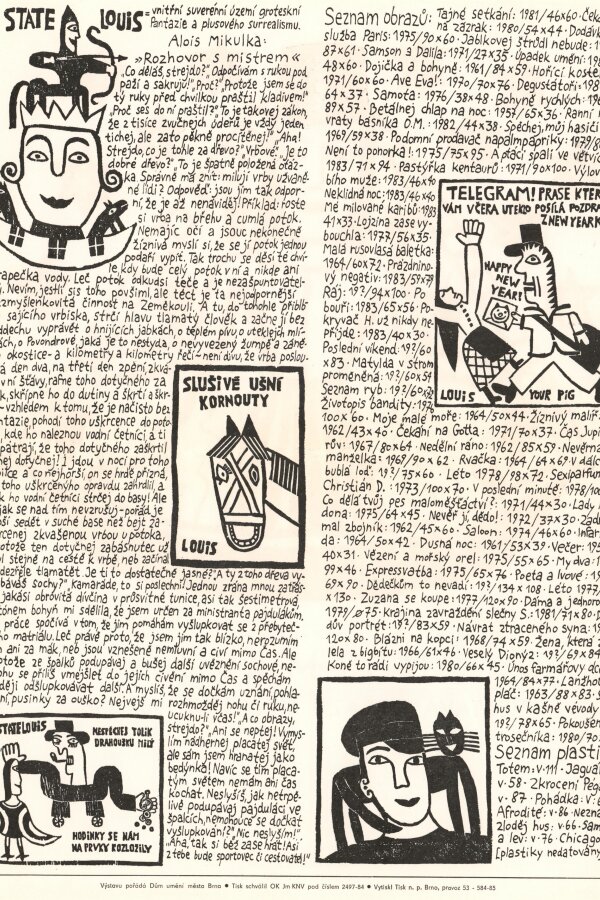 STATE LOUIS = vnitřní suverénní území groteskní
fantazie a plusového surrealismu.
Alois Mikulka:
»Rozhovor s mistrem«
"Co děláš, strejdo?" "Odpočívám s rukou pod
paží a sakruji!" "Proč?" "Protože jsem se do
tý ruky před chvilkou praštil kladivem!"
"Proč ses do ní praštil?" "To je takovej zákon,
že z tisíce zvučných úderů je vždy jeden
tichej, ale zato pěkně procítěnej!" "Aha!
Strejdo, co je tohle za dřevo?" "Vrbové." "Je to
dobré dřevo?" "To je špatně položená otáz-
ka. Správně má znít: milují vrby užívané
né lidi? Odpověď: jsou jim tak odpor-
ní, že je až nenávidějí! Příklad: roste
si vrba na břehu a cumlá potok.
Nemajíc očí a jsouc nekonečně
žíznivá myslí si, že se jí potok jednou
podaří vypít. Tak trochu se děsí té chví-
le, kdy bude celý potok v ní a nikde ani
rapečka vody. Leč potok odkudsi téče a je nezašpuntovatel-
. Nevím, jestli sis toho povšiml, ale téct je ta nejodpornější
zmyšlenkovitá činnost na Zeměkouli. A tu, do tohohle přiblb-
sajícího vrbiska, strčí hlavu tlamatý člověk a začne jí bez
ddechu vyprávět o hnijících jabkách, o teplém pivu, o uteklejch mlí-
ách, o Povondrové, jaká je to nestyda, o nevyvezený žumpě a záně-
okostice - a kilometry a kilometry řečí - není divu, že vrba poslou-
á den dva, na třetí den zpění zkva-
v ní šťávy, rafne toho dotyčného za
k, skřípne ho do dutiny a škrtí a škr-
- vzhledem k tomu, že je načisto bez
tazie, pohodí toho uškrcence do poto-
kde ho naleznou vodní četníci, a ti
pátrají, že toho dotyčného zaškrtil
nej dotyčnej! I jdou v noci pro toho
pilce a co nejhorší, on se hrdě přizná,
toho uškrceného opravdu zahrdlil, a
k ho vodní četníci strčej do basy! Ale
jak se nad tím nevzrušuj - pořád je
pší sedět v suché base než bejt za-
rcenej zkvašenou vrbou u potoka,
otože ten dotyčnej zabásnutec už
l stejně na cestě k vrbě, neb začínal
dezřele tlamatět. Je ti to dostatečně jasné?" "A ty z toho dřeva vy-
báváš sochy?" "Kamaráde, to si poslechni! Jednou zrána mnou zatřás-
jakási obrovitá divčina v průsvitné tunice, asi tak šestimetrová,
tónem bohyň mi sdělila, že jsem určen za ministranta pajdulákům,
práce spočívá v tom, že jim pomáhám vyšlupkovat se z přebyteč-
ho matriálu. Leč právě proto, že jsem jim tak blízko, nerozumím
n ani za mák, neb jsou vznešeně nemluvní a civí mimo čas. Ale
otože ze špalků podupávají a bušej další uvěznění sochové, ne-
hu se příliš vmejšlet do jejich civění mimo čas a spěchám
ději odšlupkovávat další." "A myslíš, že se dočkám uznání, pohla-
ní, pusinky za ouško?" Nejvejš mi
rozhmoždí nohu či ruku, ne-
ucuknu-li včas!" "A co obrazy,
strejdo?" "Ani se neptej! Vymys-
lím nádhernej placatej svět,
ale sám jsem hranatej jako
bedýnka! Navíc se tím placa-
tým světem nemám ani čas
kochat. Neslyšíš, jak netrpě-
livě podupávají pajduláci ve
špalcích, nemohouce se dočkat
vyšlupkování?" "Nic neslyším!"
"Aha, tak si běž zase hrát! Asi
z tebe bude sportovec či cestovatel!"
SLUŠIVÉ UŠNÍ
KORNOUTY
LOUIS
STATE LOUIS
NESPĚCHEJ TOLIK
DRAHOUŠKU MILÝ
HODINKY SE NÁM
NA PRVKY ROZLOŽILY
Seznam obrazů: Tajné setkání: 1981/46x60. Ček
služba Paris: 1975/90x60. na zázrak: 1980/54x44. Dodávk
Jablkovej štrůdl nebude: 1
87x61. Samson a Dalila: 1971/27x35. Úpadek umění: 198
48x60. Dojička a bohyně: 1961/84x59. Hořící kostel
1971/60x60. Ave Eva!: 1970/70x76. Degustátoři: 198
64x37. Samota: 1976/38x48. Bohyně rychlých: 196
89x57. Betálnej chlap na noc: 1957/65x36. Ranní n
vraty básníka O.M.: 1982/44x38. Spěchej, můj hasič
1969/59x38. Podomní prodavač napalmpapriky: 1979/80
Není to ponorka!: 1975/75x95. A ptáci spali ve větvíc
1983/71x94. Pastýřka kentaurů: 1971/90x100. Výlov
bího muže: 1983/46x40
Neklidná noc: 1983/46x40
Mé milované karibů: 1983
41x33. Lojzina zase vy-
bouchla: 1977/56x35.
Malá rusovlasá baletka:
1964/60x72. Prázdnino-
vý negativ: 1983/59x79
Ráj: 19?/94x100. Po
bouři: 1983/65x56. Po-
kryvač H. už nikdy ne-
přijde: 1983/40x30.
Poslední víkend: 19?/60
x83. Matylda v strom
proměněná: 19?/60x54
Seznam ryb: 19?/60x
Životopis bandity: 197
100x60. Moje malé moře: 1964/50x44. Žíznivý malíř.
1962/43x40. Čekání na Gotta: 1971/70x37. Čas Jupi
rův: 1967/80x64. Nedělní ráno: 1962/85x59. Nevěrná
manželka: 1969/90x62. Rvačka: 1964/64x69. V dálce
bublá loď: 19?/75x60. Léto 1978/98x72. Sexiparfum
Christián D.: 1973/100x70. V poslední minutě: 1978/100
Co dělá tvůj pes maloměšťáctví?: 1971/44x30. Lady,
dona: 1975/64x45. Nevěř jí, dědo!: 1972/37x30. Zadu
mal zbojník: 1962/45x60. Saloon: 1974/46x60. Infar
da: 1964/50x42. Dusná noc: 1961/53x39. Večer: 195
40x31. Vězení a mořský orel: 1975/55x65. My dva: 1
99x46. Expressvatba: 1975/65x76. Poeta a lvové: 19
69x90. Dědečkům to nevadí: 19?/134x108. Léto 1977
x130. Zuzana se koupe: 1977/120x90. Dáma a jednoro
1979/⌀75. Krajina zavraždění slečny S.: 1981/71x80. D
dův portrét: 19?/83x59. Návrat ztraceného syna: 19
120x80. Blázni na kopci: 1968/74x59. Žena, která z
lela z bigbítu: 1966/61x46. Veselý Dionýz: 19?/69x84
Koně to rádi vypijou: 1980/66x45. Únos farmářovy dc
1964/84x77. Lanžho
pláč: 1963/88x83. S
hus v kašně vévody
19?/78x65. Pokoušen
trosečníka: 1980/70
Seznam plasti
Totem: v-111. Jagua
v-58. Zkrocení Pega
v-87. Pohádka: v-
Afrodité: v-86. Nezna
zloděj hus: v-66. Sam
a lev: v-76. Chicago
[plastiky nedatovány
TELEGRAM! PRASE KTER
VÁM VČERA UTEKLO POSÍLÁ POZDRA
Z NEW YORK
HAPPY
NEW
YEAR!
LOUIS YOUR PIG
Výstavu pořádá Dům umění města Brna • Tisk schválil OK Jm KNV pod číslem 2497-84 • Vytiskl Tisk n. p. Brno, provoz 53 - 584-85